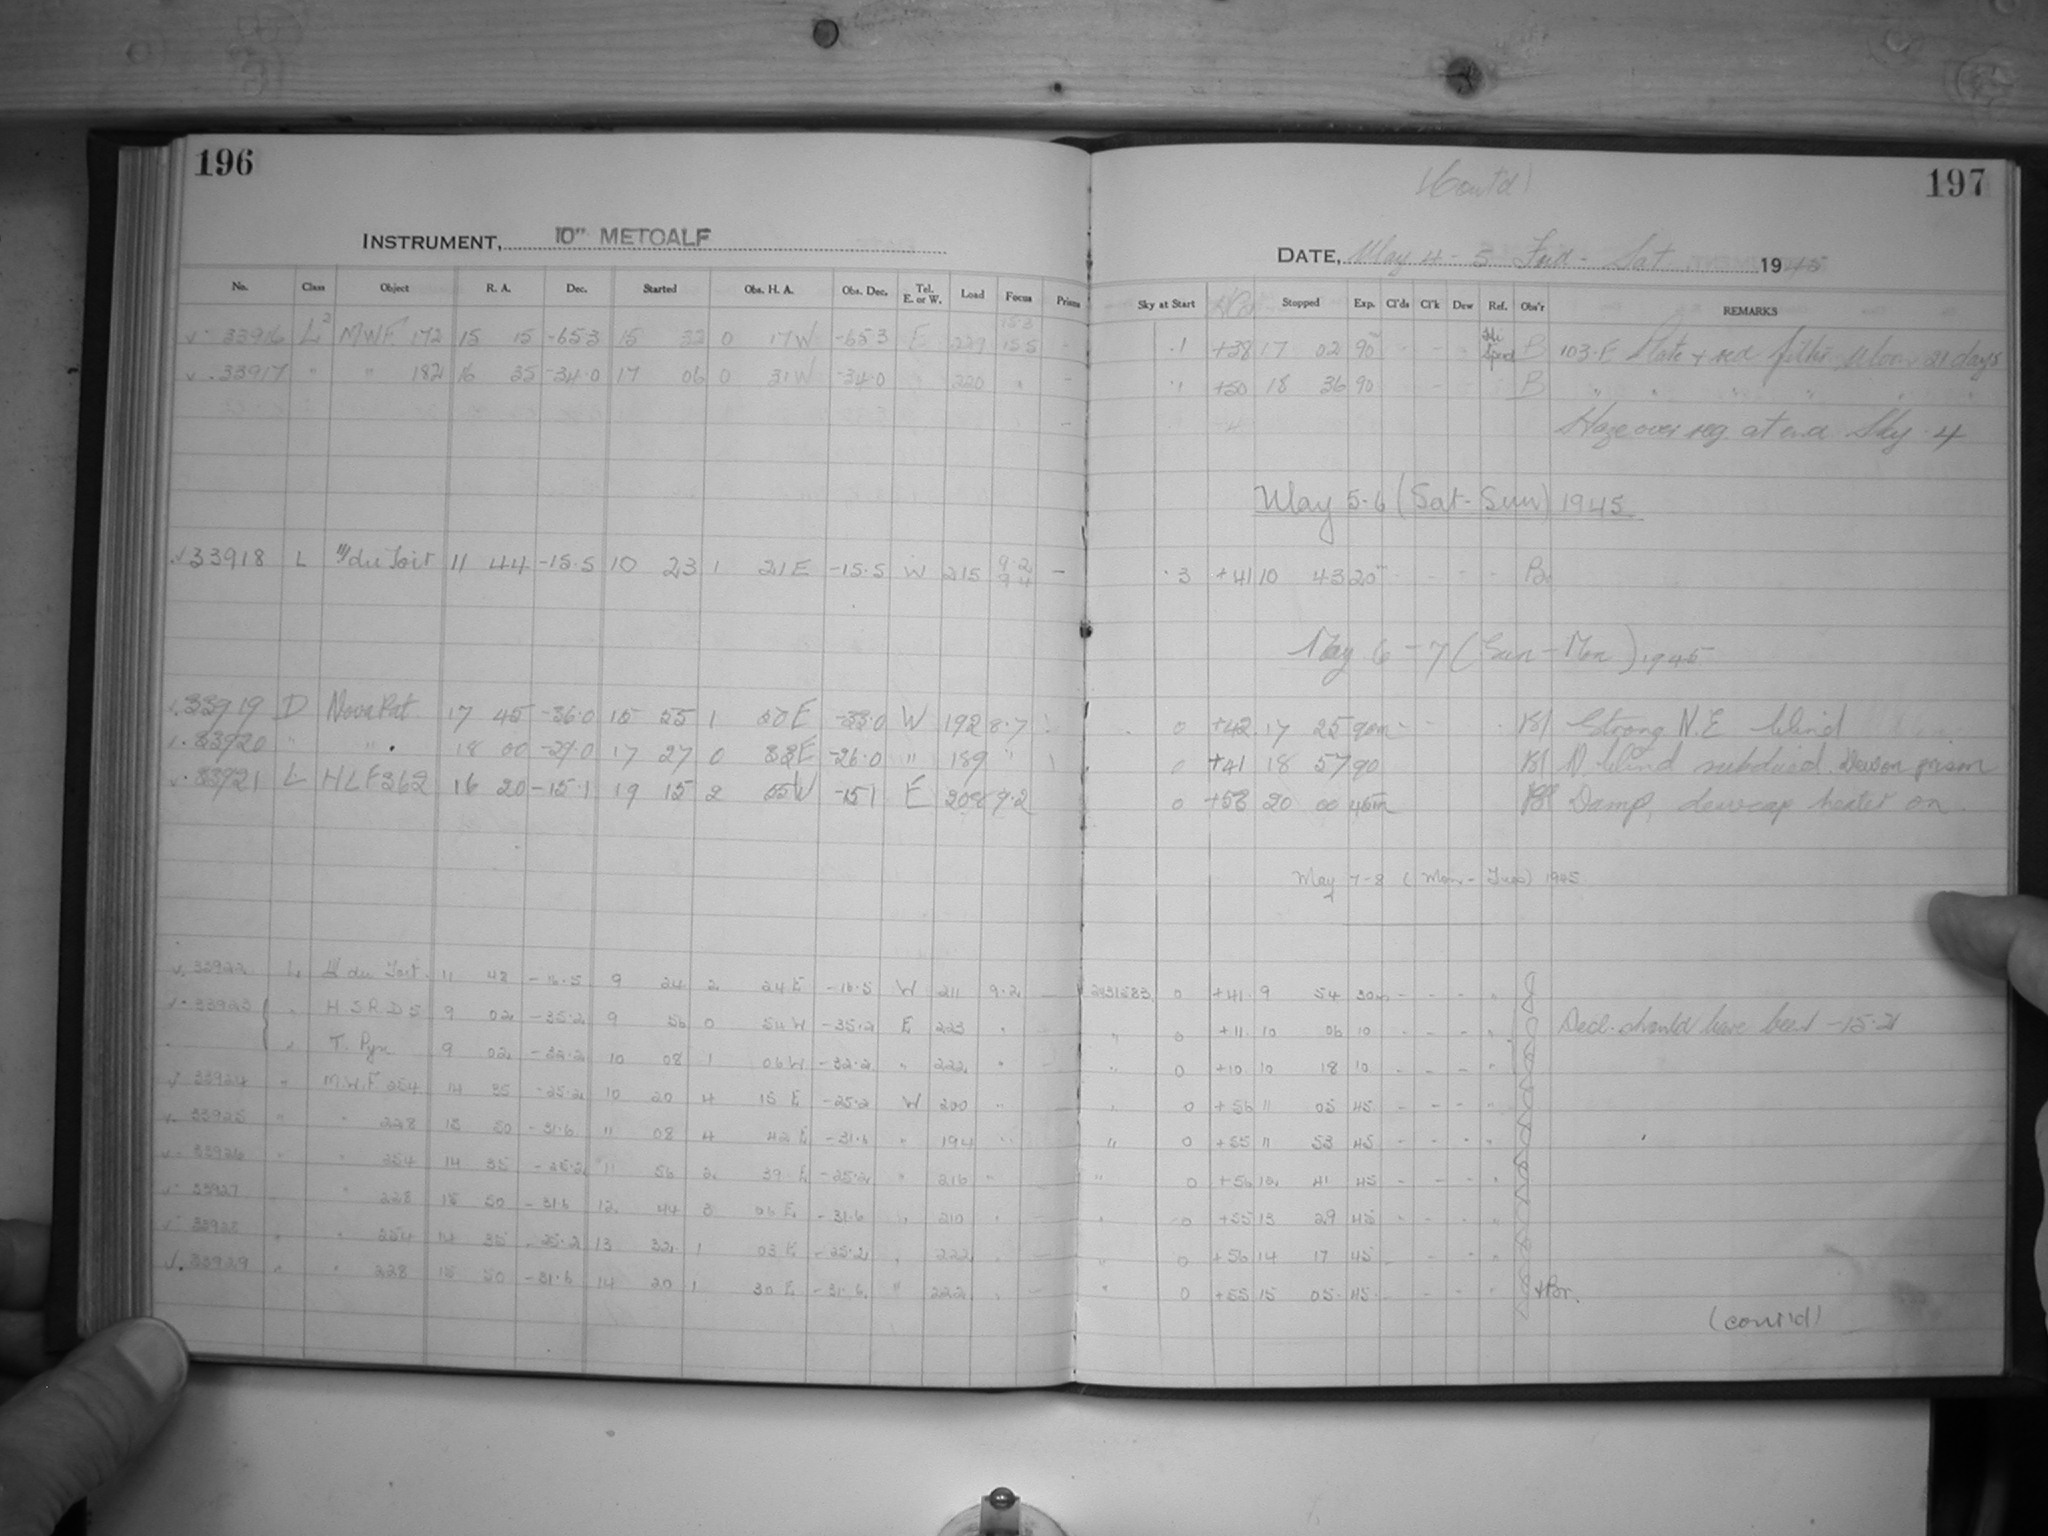 196
INSTRUMENT, 10" METCALF
No. Class Object R. A. Dec. Started Obs. H. A. Obs. Dec. Tel. E. or W. Load Focus Prism
33916 L2 MWF 172 15 15 -65.3 15 32 0 17W -65.3 E 229 15.3 15.5
33917 " " 182 16 35 -34.0 17 06 0 31W -34.0 220 " -
33918 L du Toit 11 44 -15.5 10 23 1 21E -15.5 W 215 9.2 9.4 -
33919 D Nova 17 45 -36.0 15 55 1 50E -33.0 W 192 8.7
33920 " " 18 00 -27.0 17 27 0 33E -26.0 " 189 "
33921 L HLF262 16 20 -15.1 19 15 2 55W -15.1 E 208 9.2
33922 L du Toit 11 48 -16.5 9 24 2 24E -16.5 W 211 9.2 -
33923 " H.S.R.D 5 9 02 -35.2 9 56 0 54W -35.2 E 223 " -
" T. Pyx 9 02 -32.2 10 08 1 06W -32.2 " 222 " -
33924 " M.W.F 254 14 35 -25.2 10 20 4 15E -25.2 W 200 " -
33925 " " 228 15 50 -31.6 11 08 4 42E -31.6 " 194 "
33926 " " 254 14 35 -25.2 11 56 2 39E -25.2 " 216 "
33927 " 228 15 50 -31.6 12 44 3 06E -31.6 " 210 "
33928 " " 254 14 35 -25.2 13 32 1 03E -25.2 " 222 "
33929 " " 228 15 50 -31.6 14 20 1 30E -31.6 " 222 "
(Cont'd)
197
DATE, May 4 - 5 - Sat 1945
Sky at Start Stopped Exp. Cl'ds Cl'k Dew Ref. Obs'r REMARKS
.1 +38 17 02 90m - - Hi Speed B 103-F Plate + red filter Moon 21 days
.1 +50 18 36 90 - B " " " " " "
Haze over reg. at end Sky .4
May 5-6 (Sat-Sun) 1945
.3 +41 10 43 20m - - - Br
May 6 - 7 (Sun - Mon) 1945
0 +42 17 25 90m Strong N.E Wind
0 +41 18 57 90 N. Wind subdued. Dew on prism
0 +58 20 00 45m Damp, dewcap heater on.
May 7-8 (Mon - Tues) 1945
2431583 0 +41 9 54 30m - - - "
" 0 +11 10 06 10 - - - " Decl. should have been -15.2
" 0 +10 10 18 10 - - - "
" 0 +56 11 05 45 - - - "
" 0 +55 11 53 45 - - - "
" 0 +56 12 41 45 - - - "
" 0 +55 13 29 45 - - "
" 0 +56 14 17 45 - - - "
" 0 +55 15 05 45 - - - " +Br.
(cont'd)